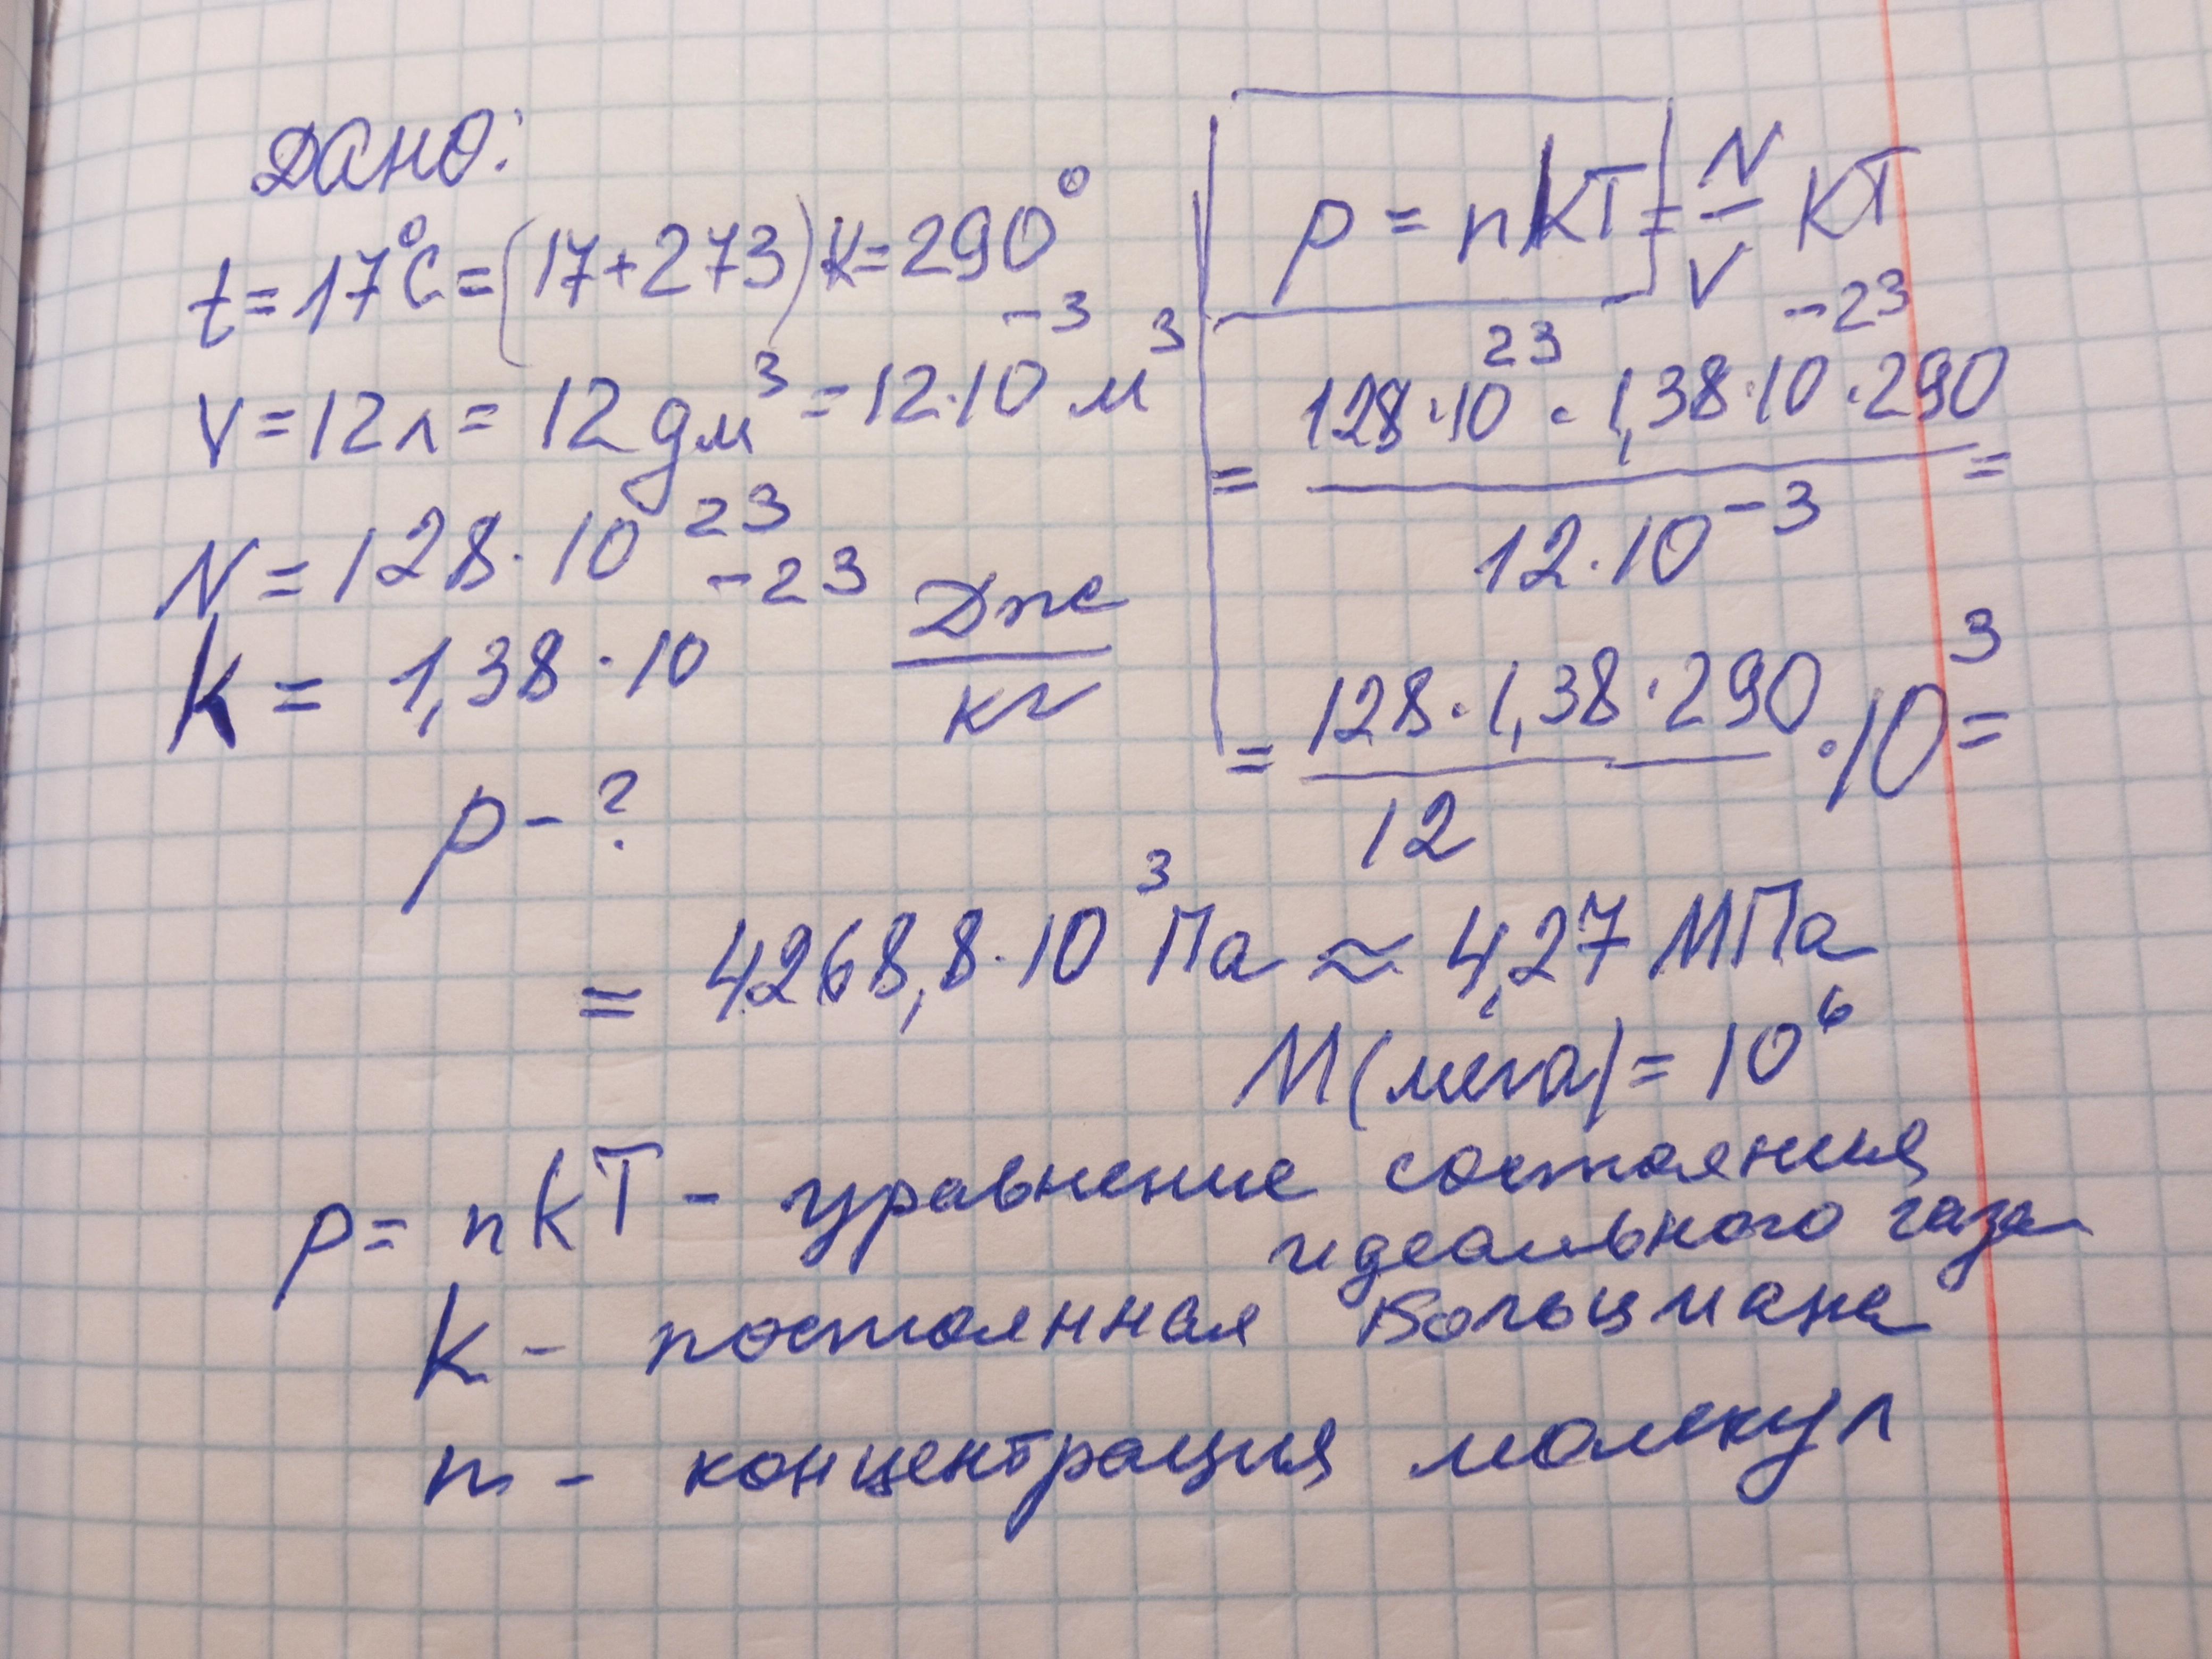 Дано:
t = 17°C = (17+273)K = 290°
V = 12л = 12 дм³ = 12·10⁻³ м³
N = 128·10²³
k = 1,38·10⁻²³ Дж/кг
p - ?
p = nkT = N/V kT
= 128·10²³·1,38·10⁻²³·290 / 12·10⁻³ =
= 128·1,38·290 / 12 ·10³ =
= 4268,8·10³ Па ≈ 4,27 МПа
М(мега) = 10⁶
p = nkT - уравнение состояния
идеального газа
k - постоянная Больцмана
n - концентрация молекул